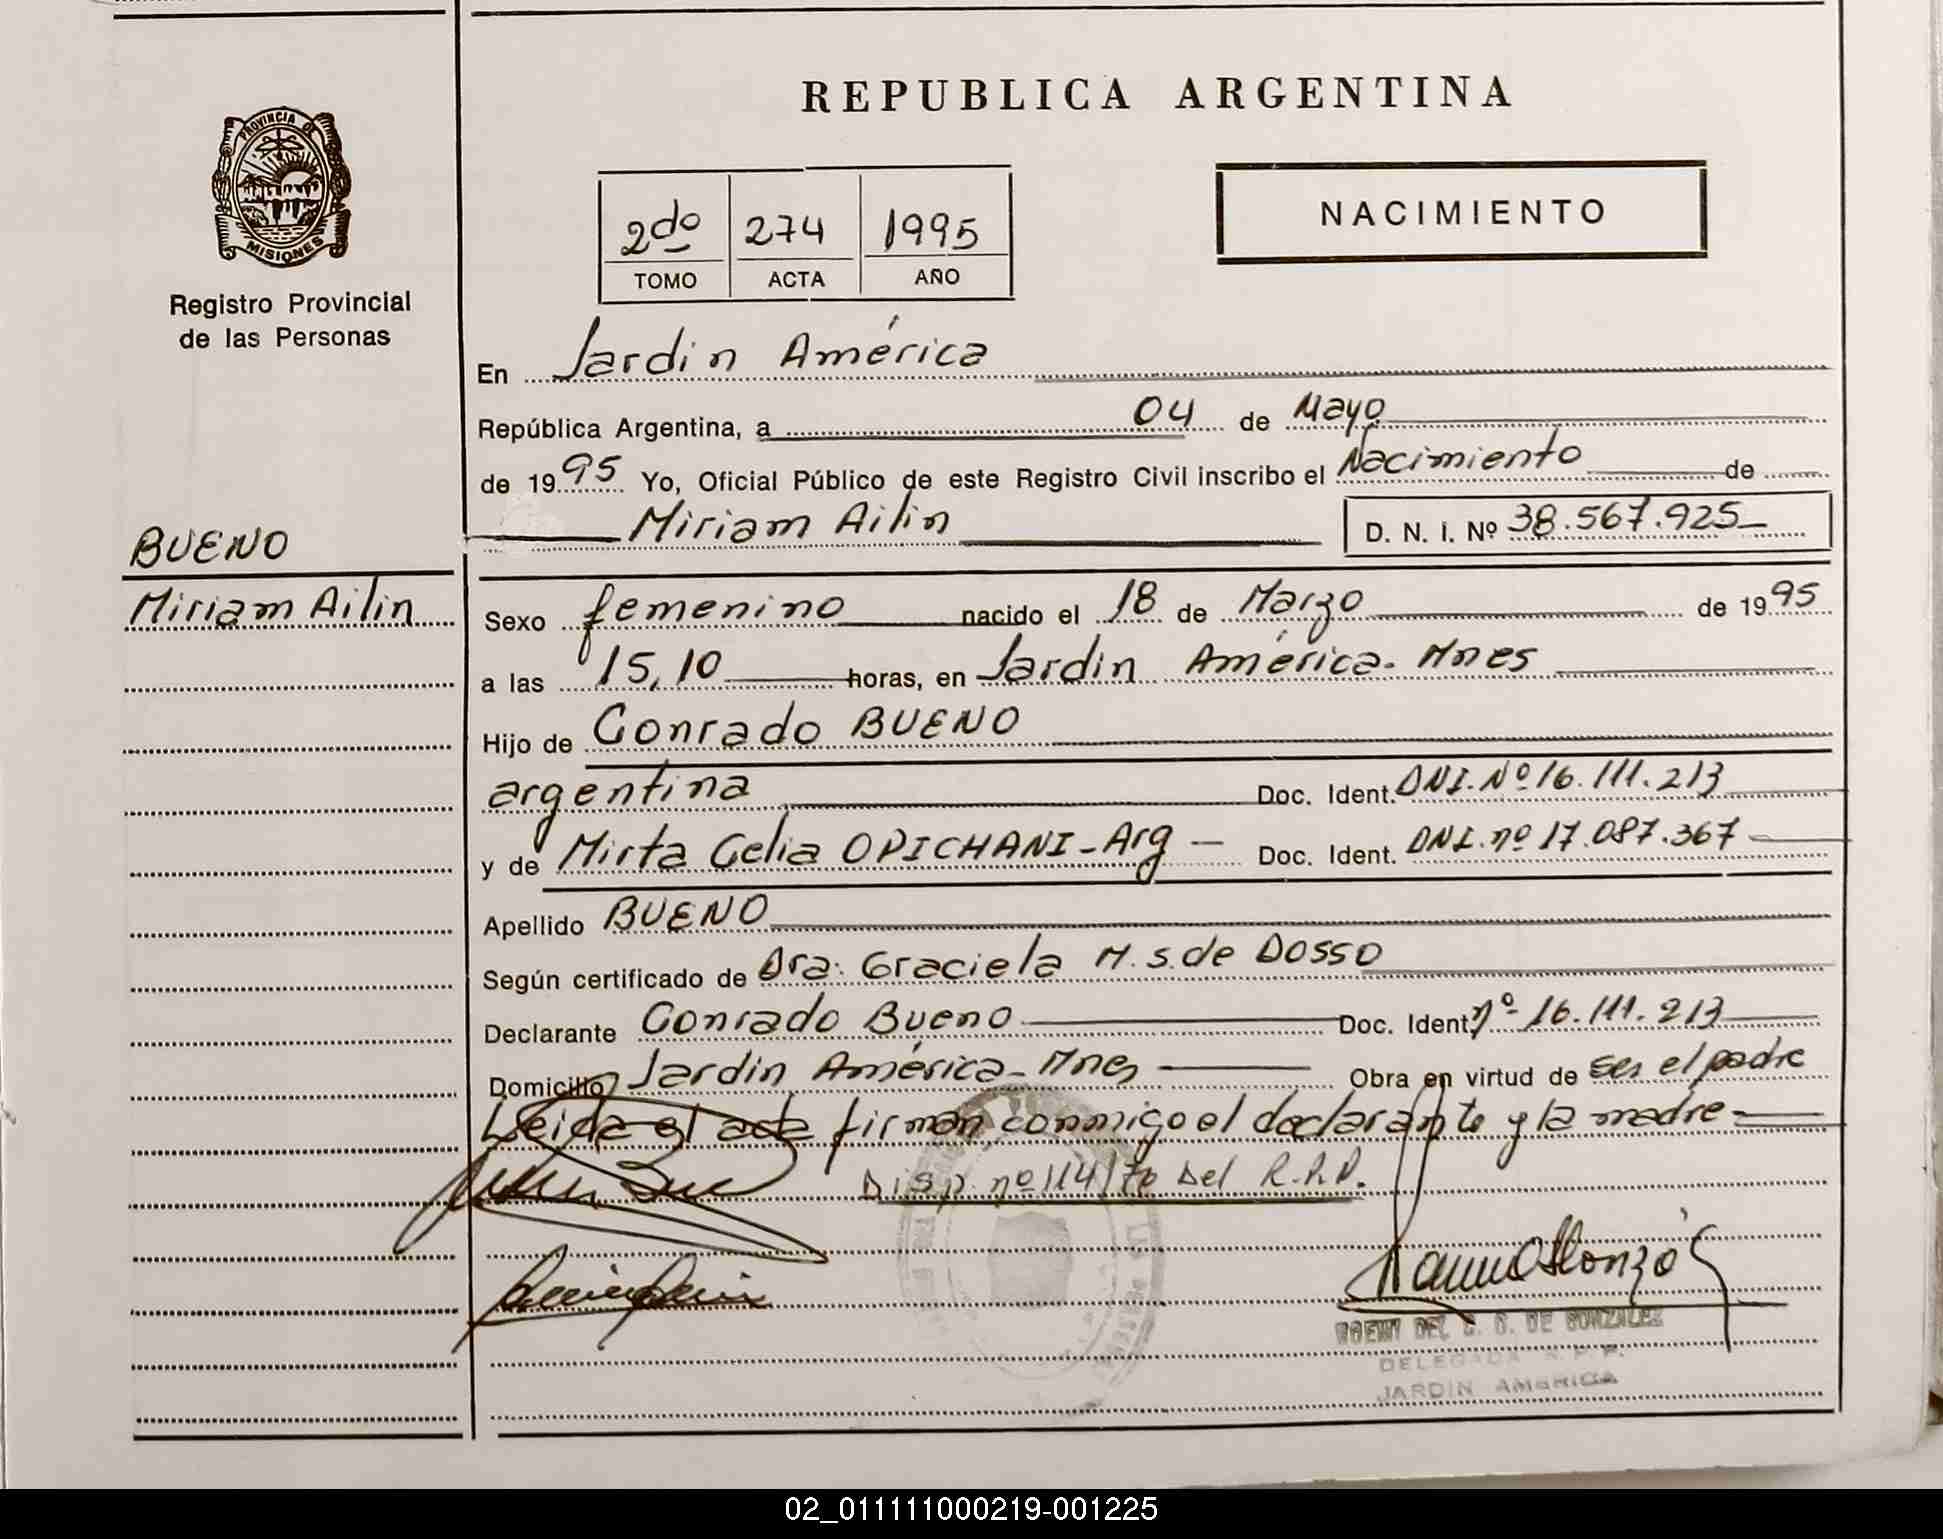 PROVINCIA DE
MISIONES
Registro Provincial
de las Personas
BUENO
Miriam Ailin
REPUBLICA ARGENTINA
2do 274 1995
TOMO ACTA AÑO
NACIMIENTO
En Jardin América
República Argentina, a 04 de Mayo
de 1995 Yo, Oficial Público de este Registro Civil inscribo el Nacimiento de
Miriam Ailin D. N. I. Nº 38.567.925
Sexo femenino nacido el 18 de Marzo de 1995
a las 15,10 horas, en Jardin América. Mnes
Hijo de Conrado BUENO
argentina Doc. Ident. DNI. Nº 16.111.213
y de Mirta Celia OPICHANI - Arg Doc. Ident. DNI. nº 17.087.367
Apellido BUENO
Según certificado de Dra. Graciela M. S. de DOSSO
Declarante Conrado Bueno Doc. Ident nº 16.111.213
Domicilio Jardin América - Mnes Obra en virtud de ser el padre
Leida el acta firman conmigo el declarante y la madre
Disp. nº 114/70 Del R.P.P.
DEL C. G. DE GONZALEZ
DELEGADA R. P. P.
JARDIN AMERICA
02_011111000219-001225